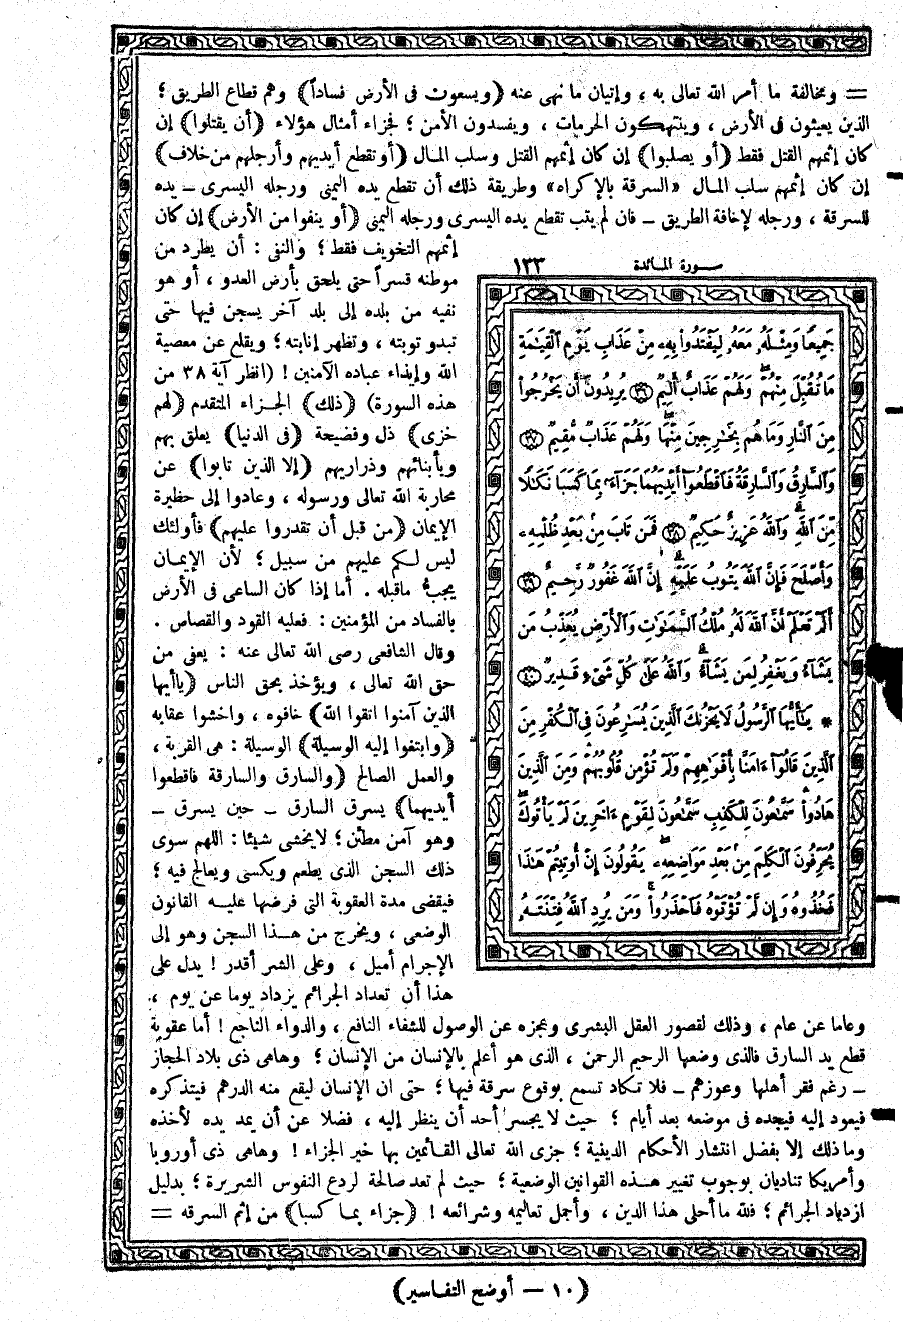 = ومخالفة ما أمر الله تعالى به ، وإتيان ما نهى عنه (ويسعون فى الأرض فساداً) وهم قطاع الطريق ؛
الذين يعيثون فى الأرض ، وينتهكون الحرمات ، ويفسدون الأمن ؛ فجزاء أمثال هؤلاء (أن يقتلوا) إن
كان إثمهم القتل فقط (أو يصلبوا) إن كان إثمهم القتل وسلب المال (أو تقطع أيديهم وأرجلهم من خلاف)
إن كان إثمهم سلب المال «السرقة بالإكراه» وطريقة ذلك أن تقطع يده اليمنى ورجله اليسرى ــ يده
للسرقة ، ورجله لإخافة الطريق ــ فان لم يتب تقطع يده اليسرى ورجله اليمنى (أو ينفوا من الأرض) إن كان
إثمهم التخويف فقط ؛ والنفى : أن يطرد من
موطنه قسراً حتى يلحق بأرض العدو ، أو هو
نفيه من بلده إلى بلد آخر يسجن فيها حتى
تبدو توبته ، وتظهر إنابته ؛ ويقلع عن معصية
الله وإيذاء عباده الآمنين ! (انظر آية ٣٨ من
هذه السورة) (ذلك) الجزاء المتقدم (لهم
خزى) ذل وفضيحة (فى الدنيا) يعلق بهم
وبأبنائهم وذراريهم (إلا الذين تابوا) عن
محاربة الله تعالى ورسوله ، وعادوا إلى حظيرة
الإيمان (من قبل أن تقدروا عليهم) فأولئك
ليس لكم عليهم من سبيل ؛ لأن الإيمان
يجب ماقبله . أما إذا كان الساعى فى الأرض
بالفساد من المؤمنين : فعليه القود والقصاص .
وقال الشافعى رضى الله تعالى عنه : يعفى من
حق الله تعالى ، ويؤخذ بحق الناس (ياأيها
الذين آمنوا اتقوا الله) خافوه ، واخشوا عقابه
(وابتغوا إليه الوسيلة) الوسيلة : هى القربة ،
والعمل الصالح (والسارق والسارقة فاقطعوا
أيديهما) يسرق السارق ــ حين يسرق ــ
وهو آمن مطمئن ؛ لايخشى شيئا : اللهم سوى
ذلك السجن الذى يطعم ويكسى ويعالج فيه ؛
فيقضى مدة العقوبة التى فرضها عليه القانون
الوضعى ، ويخرج من هذا السجن وهو إلى
الإجرام أميل ، وعلى الشر أقدر ! يدل على
هذا أن تعداد الجرائم يزداد يوما عن يوم ،
سورة المائدة ١٣٣
جَمِيعًا وَمِثْلَهُۥ مَعَهُۥ لِيَفْتَدُوا۟ بِهِۦ مِنْ عَذَابِ يَوْمِ ٱلْقِيَٰمَةِ
مَا تُقُبِّلَ مِنْهُمْ ۖ وَلَهُمْ عَذَابٌ أَلِيمٌ ﴿٣٦﴾ يُرِيدُونَ أَن يَخْرُجُوا۟
مِنَ ٱلنَّارِ وَمَا هُم بِخَٰرِجِينَ مِنْهَا ۖ وَلَهُمْ عَذَابٌ مُّقِيمٌ ﴿٣٧﴾
وَٱلسَّارِقُ وَٱلسَّارِقَةُ فَٱقْطَعُوٓا۟ أَيْدِيَهُمَا جَزَآءًۢ بِمَا كَسَبَا نَكَٰلًا
مِّنَ ٱللَّهِ ۗ وَٱللَّهُ عَزِيزٌ حَكِيمٌ ﴿٣٨﴾ فَمَن تَابَ مِنۢ بَعْدِ ظُلْمِهِۦ
وَأَصْلَحَ فَإِنَّ ٱللَّهَ يَتُوبُ عَلَيْهِ ۗ إِنَّ ٱللَّهَ غَفُورٌ رَّحِيمٌ ﴿٣٩﴾
أَلَمْ تَعْلَمْ أَنَّ ٱللَّهَ لَهُۥ مُلْكُ ٱلسَّمَٰوَٰتِ وَٱلْأَرْضِ يُعَذِّبُ مَن
يَشَآءُ وَيَغْفِرُ لِمَن يَشَآءُ ۗ وَٱللَّهُ عَلَىٰ كُلِّ شَىْءٍ قَدِيرٌ ﴿٤٠﴾
* يَٰٓأَيُّهَا ٱلرَّسُولُ لَا يَحْزُنكَ ٱلَّذِينَ يُسَٰرِعُونَ فِى ٱلْكُفْرِ مِنَ
ٱلَّذِينَ قَالُوٓا۟ ءَامَنَّا بِأَفْوَٰهِهِمْ وَلَمْ تُؤْمِن قُلُوبُهُمْ ۛ وَمِنَ ٱلَّذِينَ
هَادُوا۟ ۛ سَمَّٰعُونَ لِلْكَذِبِ سَمَّٰعُونَ لِقَوْمٍ ءَاخَرِينَ لَمْ يَأْتُوكَ ۖ
يُحَرِّفُونَ ٱلْكَلِمَ مِنۢ بَعْدِ مَوَاضِعِهِۦ ۖ يَقُولُونَ إِنْ أُوتِيتُمْ هَٰذَا
فَخُذُوهُ وَإِن لَّمْ تُؤْتَوْهُ فَٱحْذَرُوا۟ ۚ وَمَن يُرِدِ ٱللَّهُ فِتْنَتَهُۥ
وعاما عن عام ، وذلك لقصور العقل البشرى وعجزه عن الوصول للشفاء النافع ، والدواء الناجع ! أما عقوبة
قطع يد السارق فالذى وضعها الرحيم الرحمن ، الذى هو أعلم بالإنسان من الإنسان ؛ وهاهى ذى بلاد الحجاز
ــ رغم فقر أهلها وعوزهم ــ فلا تكاد تسمع بوقوع سرقة فيها ؛ حتى ان الإنسان ليقع منه الدرهم فيتذكره
فيعود إليه فيجده فى موضعه بعد أيام ؛ حيث لا يجسر أحد أن ينظر إليه ، فضلا عن أن يمد يده لأخذه
وما ذلك إلا بفضل انتشار الأحكام الدينية ؛ جزى الله تعالى القائمين بها خير الجزاء ! وهاهى ذى أوروبا
وأمريكا تناديان بوجوب تغيير هذه القوانين الوضعية ؛ حيث لم تعد صالحة لردع النفوس الشريرة ؛ بدليل
ازدياد الجرائم ؛ فلله ما أحلى هذا الدين ، وأجمل تعاليمه وشرائعه ! (جزاء بما كسبا) من إثم السرقة =
(١٠ — أوضح التفاسير)